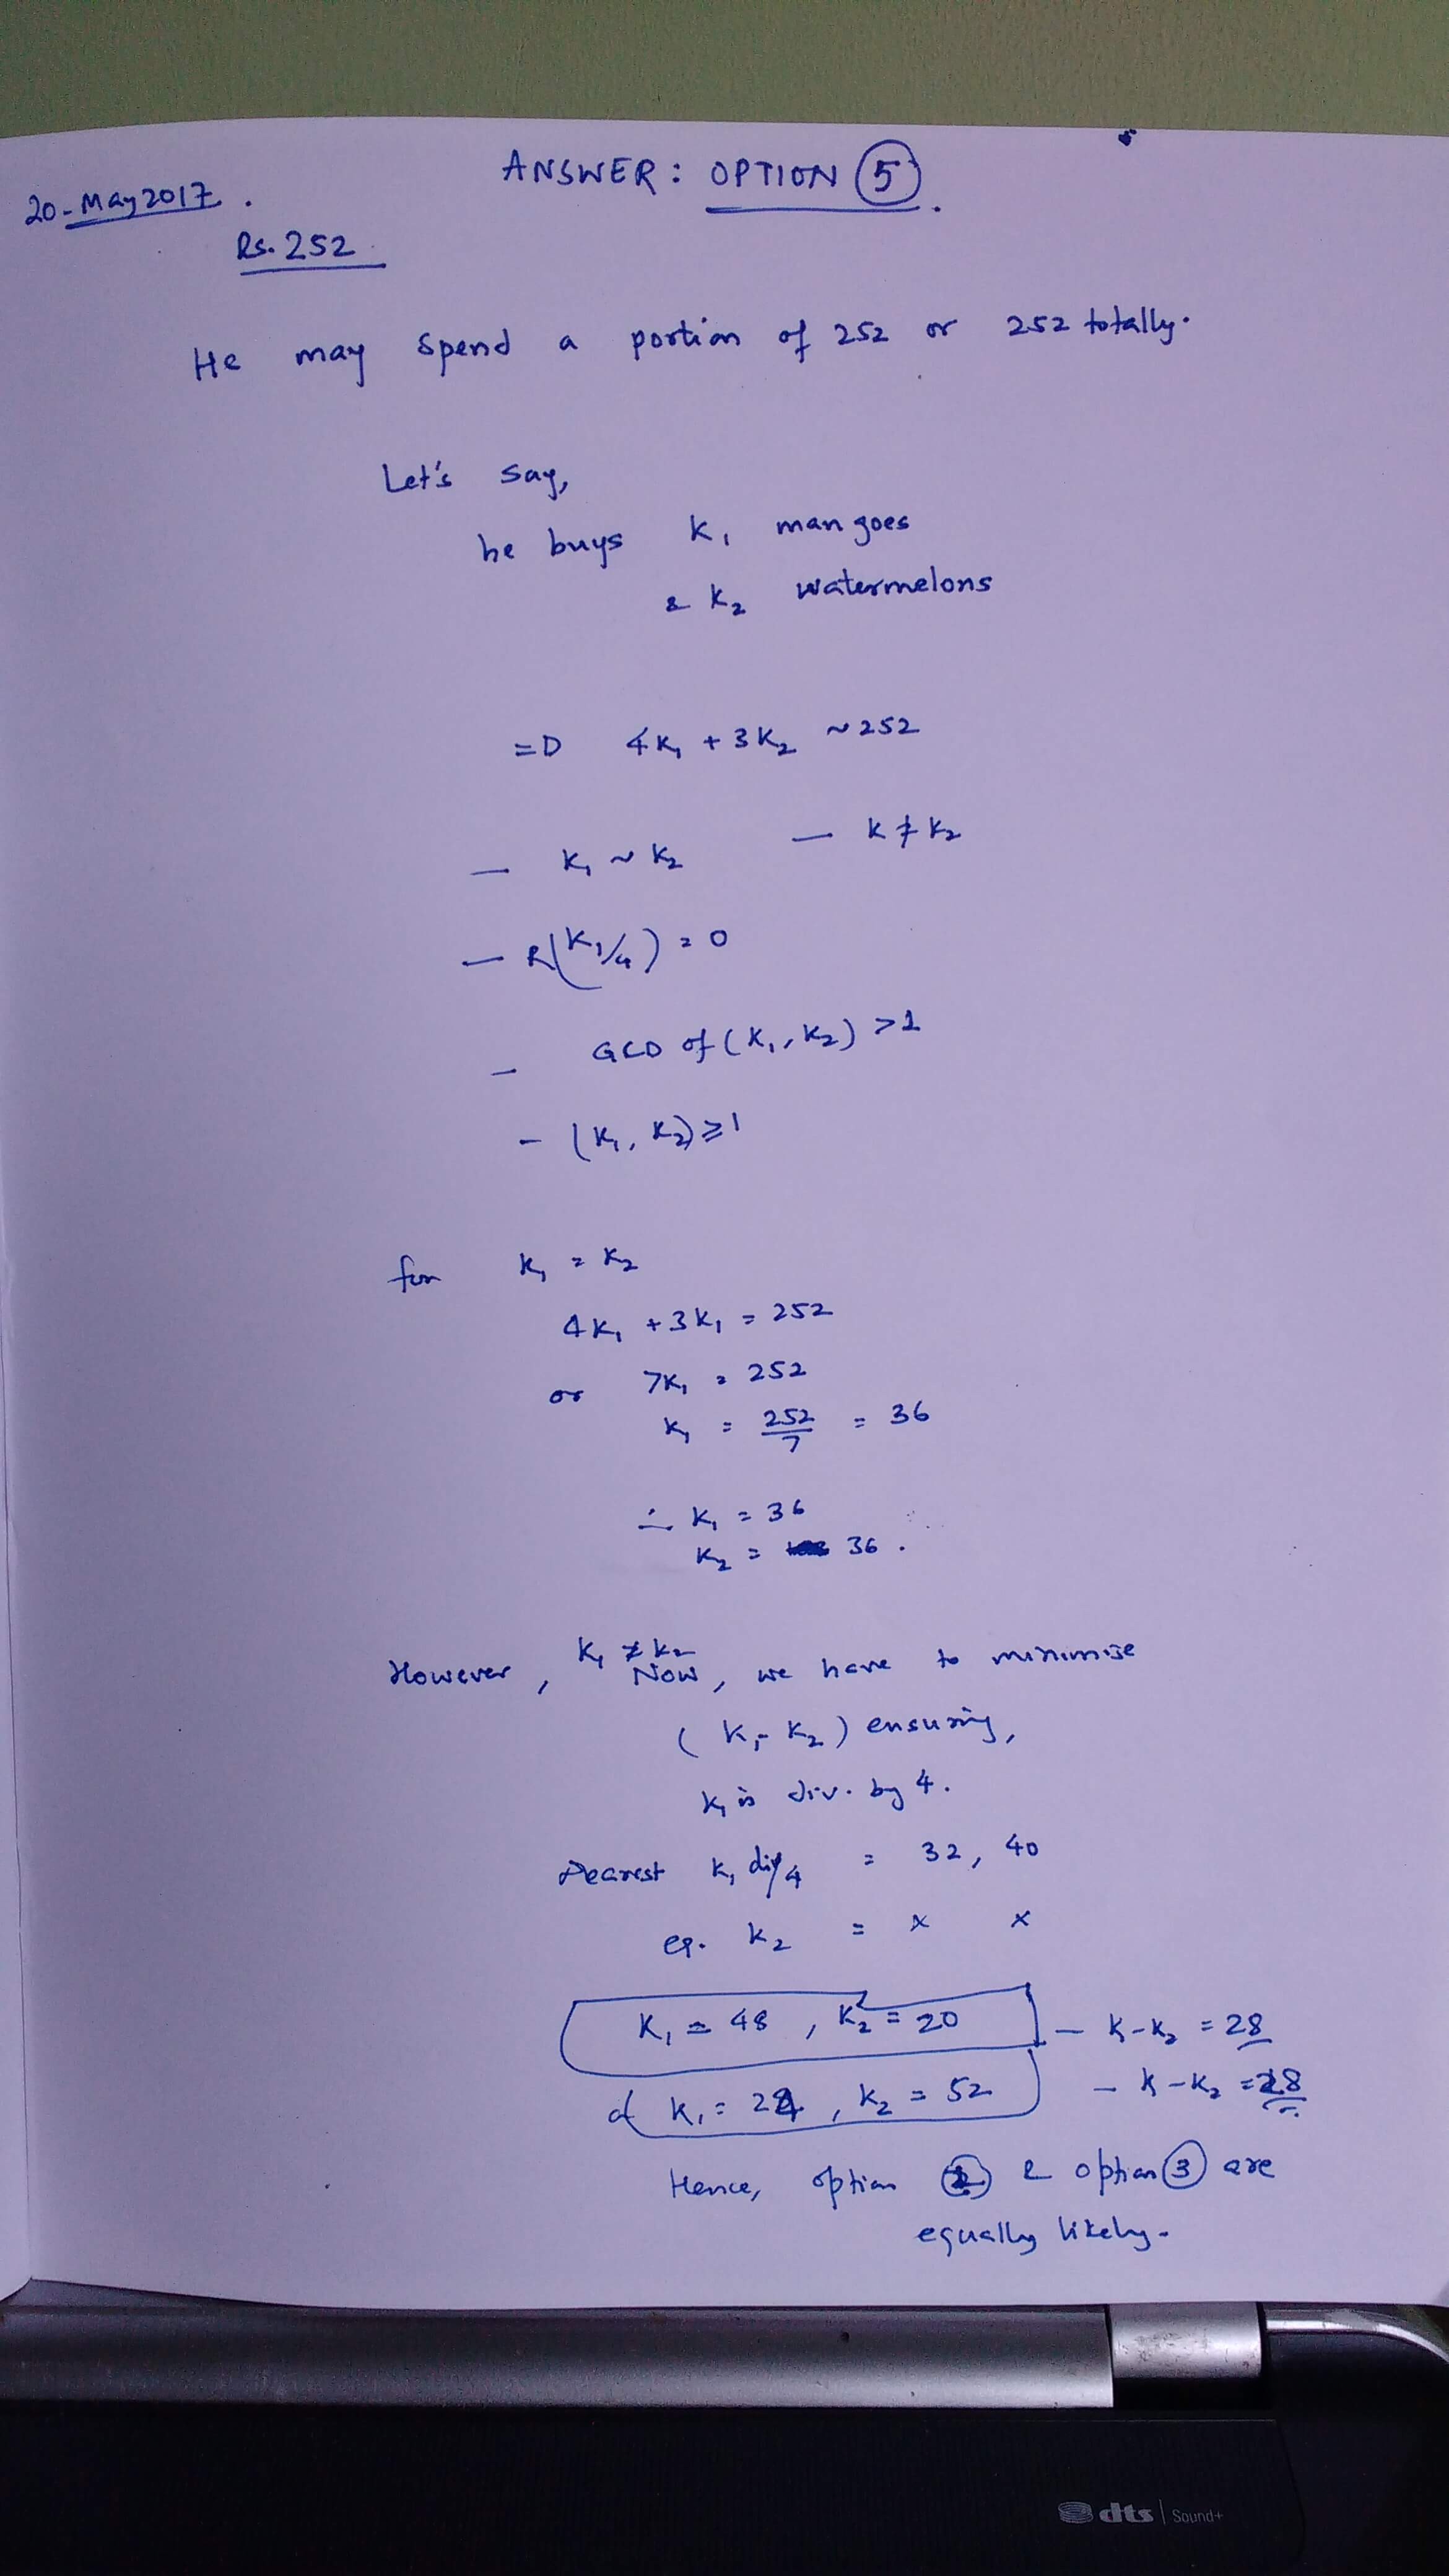 ANSWER: OPTION 5.
20-May2017.
Rs.252
He may spend a portion of 252 or 252 totally.
Let's say,
he buys K₁ mangoes
& K₂ watermelons
=D 4K₁ + 3K₂ ~252
— K₁ ~ K₂ — K ≠ K₂
— R(K₁/4) = 0
— GCD of (K₁, K₂) >1
— (K₁, K₂) ≥ 1
for K₁ = K₂
4K₁ + 3K₁ = 252
or 7K₁ = 252
K₁ = 252/7 = 36
∴ K₁ = 36
K₂ = 36.
However, K₁ ≠ K₂ Now, we have to minimise
(K₁- K₂) ensuring,
K₁ is div. by 4.
Nearest K₁ div 4 = 32, 40
eq. K₂ = x x
K₁ = 48, K₂ = 20 — K-K₂ = 28
K₁ = 24, K₂ = 52 — K-K₂ = 28
Hence, option & option 3 are
equally likely.
dts Sound+